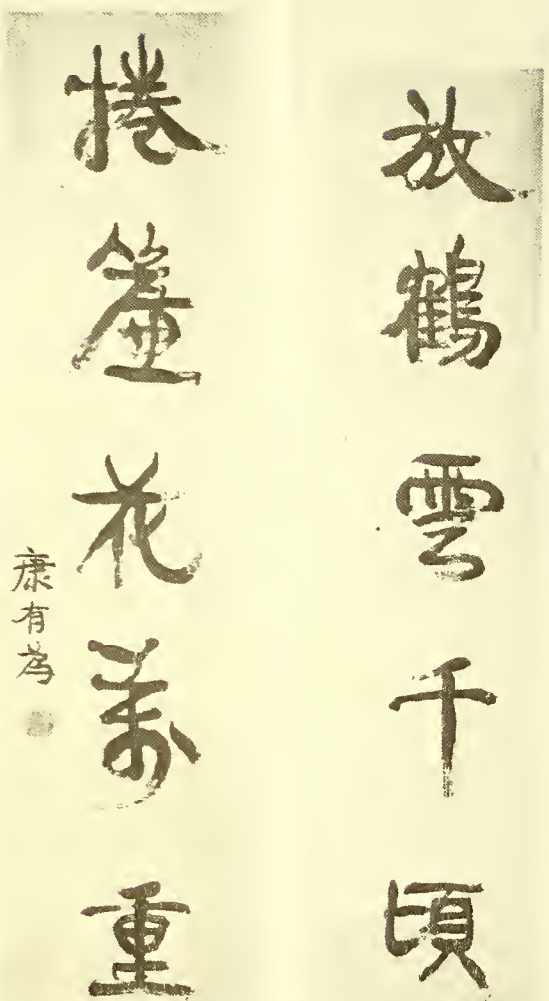 放鶴雲千頃
捲簾花萬重
康有為